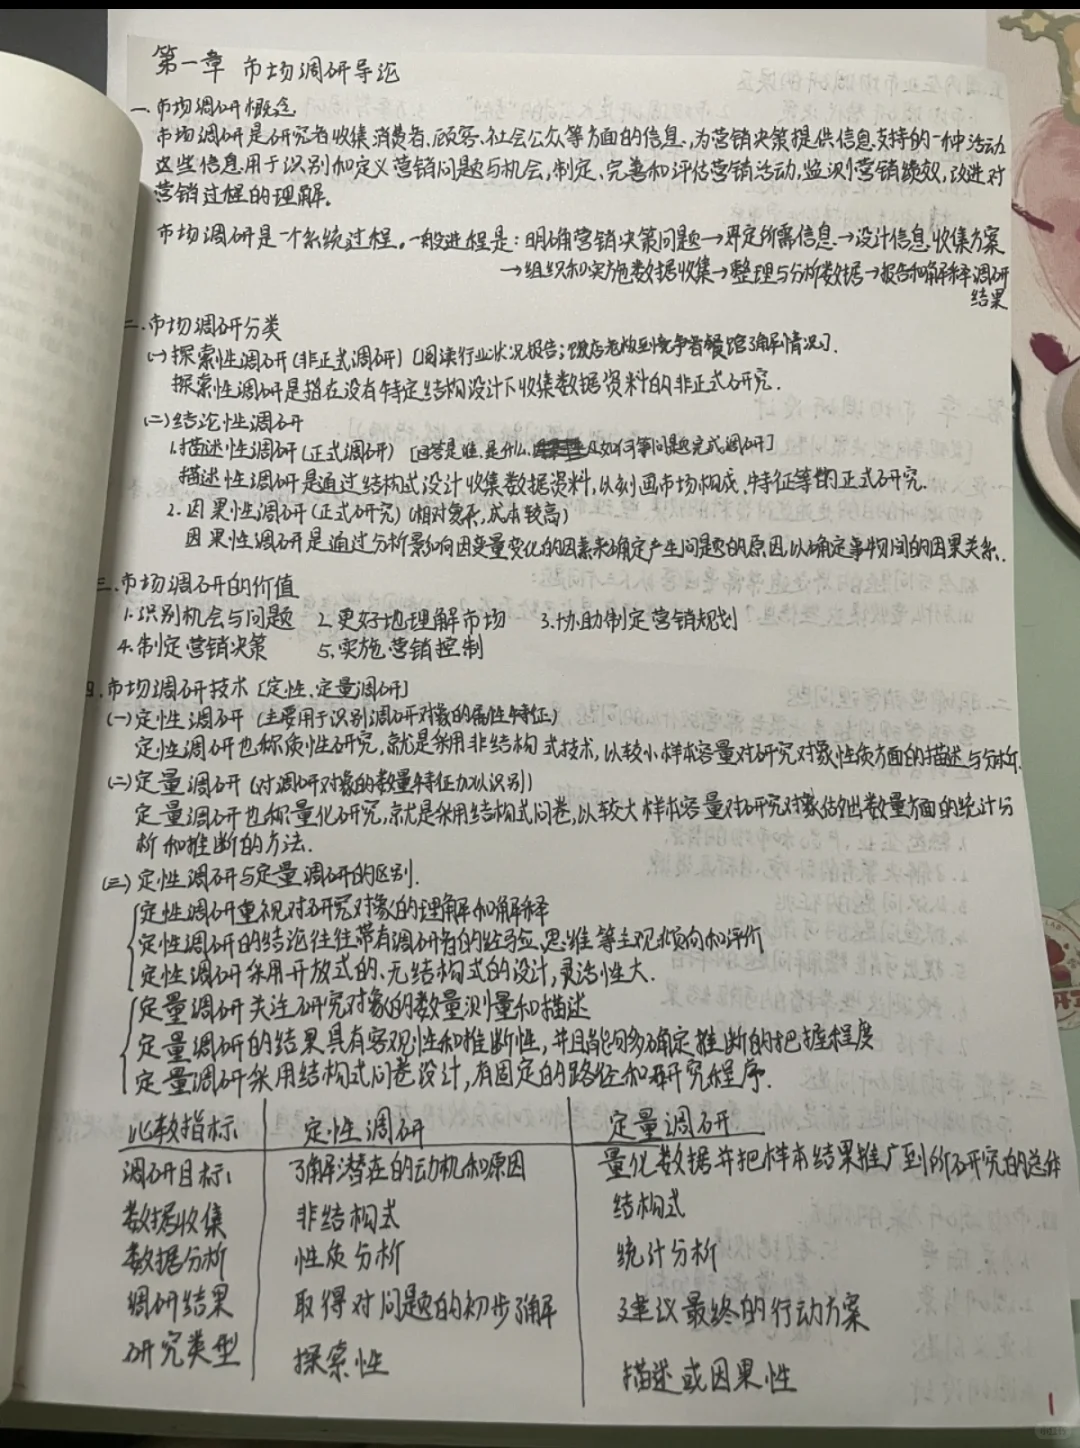 第一章 市场调研导论
一.市场调研概念
市场调研是研究者收集消费者、顾客、社会公众等方面的信息,为营销决策提供信息支持的一种活动
这些信息用于识别和定义营销问题与机会,制定、完善和评估营销活动,监测营销绩效,改进对
营销过程的理解.
市场调研是一个系统过程。一般进程是:明确营销决策问题→界定所需信息→设计信息收集方案
→组织和实施数据收集→整理与分析数据→报告和解释调研
结果
二.市场调研分类
(一)探索性调研(非正式调研)[阅读行业状况报告;饭店老板到竞争者餐馆了解情况].
探索性调研是指在没有特定结构设计下收集数据资料的非正式研究.
(二)结论性调研
1.描述性调研(正式调研) [回答是谁、是什么、以如何等问题完式调研]
描述性调研是通过结构式设计收集数据资料,以刻画市场构成、特征等的正式研究.
2.因果性调研(正式研究)(相对复杂,成本较高)
因果性调研是通过分析影响因变量变化的因素来确定产生问题的原因,以确定事物间的因果关系.
三.市场调研的价值
1.识别机会与问题 2.更好地理解市场 3.协助制定营销规划
4.制定营销决策 5.实施营销控制
四.市场调研技术 [定性、定量调研]
(一)定性调研 (主要用于识别调研对象的属性特征)
定性调研也称质性研究,就是采用非结构式技术,以较小样本容量对研究对象性质方面的描述与分析.
(二)定量调研 (对调研对象的数量特征加以识别)
定量调研也称量化研究,就是采用结构式问卷,以较大样本容量对研究对象估出数量方面的统计分
析和推断的方法.
(三)定性调研与定量调研的区别.
定性调研重视对研究对象的理解和解释
定性调研的结论往往带有调研者的经验、思维等主观倾向和评价
定性调研采用开放式的、无结构式的设计,灵活性大.
定量调研关注研究对象的数量测量和描述
定量调研的结果具有客观性和推断性,并且能够确定推断的把握程度
定量调研采用结构式问卷设计,有固定的路径和研究程序.
比较指标 定性调研 定量调研
调研目标 了解潜在的动机和原因 量化数据并把样本结果推广到所研究的总体
数据收集 非结构式 结构式
数据分析 性质分析 统计分析
调研结果 取得对问题的初步了解 建议最终的行动方案
研究类型 探索性 描述或因果性
1